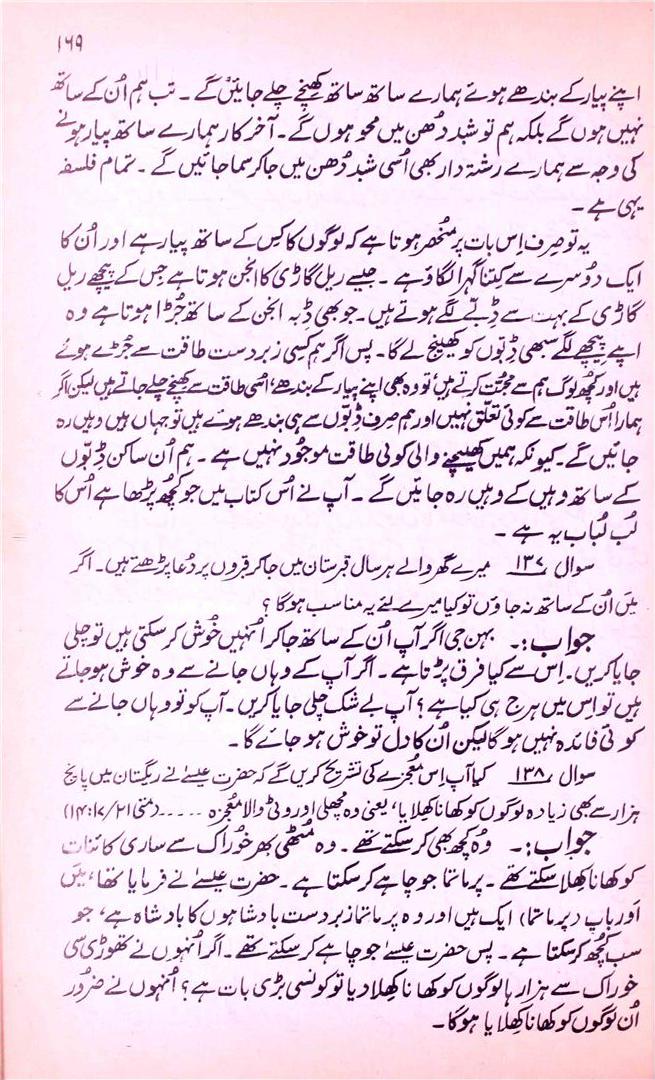 ۱۶۹
اپنے پیار کے بندھے ہوئے ہمارے ساتھ ساتھ کھینچے چلے جائیں گے۔ تب ہم اُن کے ساتھ
نہیں ہوں گے بلکہ ہم تو شبد دُھن میں محو ہوں گے۔ آخر کار ہمارے ساتھ پیار ہونے
کی وجہ سے ہمارے رشتہ دار بھی اُسی شبد دُھن میں جا کر سما جائیں گے۔ تمام فلسفہ
یہی ہے۔
یہ تو صِرف اِس بات پر منحصر ہوتا ہے کہ لوگوں کا کِس کے ساتھ پیار ہے اور اُن کا
ایک دوسرے سے کِتنا گہرا لگاؤ ہے۔ جیسے ریل گاڑی کا انجن ہوتا ہے جِس کے پیچھے ریل
گاڑی کے بہت سے ڈِبّے لگے ہوتے ہیں۔ جو بھی ڈِبہ انجن کے ساتھ جُڑا ہوتا ہے وہ
اپنے پیچھے لگے سبھی ڈِبّوں کو کھینچ لے گا۔ پس اگر ہم کِسی زبردست طاقت سے جُڑے ہوئے
ہیں اور کچھ لوگ ہم سے محبّت کرتے ہیں تو وہ بھی اپنے پیار کے بندھے، اُسی طاقت سے کھینچے چلے جاتے ہیں لیکن اگر
ہمارا اُس طاقت سے کوئی تعلّق نہیں اور ہم صِرف ڈِبّوں سے ہی بندھے ہوئے ہیں تو جہاں ہیں وہیں رہ
جائیں گے۔ کیونکہ ہمیں کھینچنے والی کوئی طاقت موجود نہیں ہے۔ ہم اُن ساکن ڈِبّوں
کے ساتھ وہیں کے وہیں رہ جائیں گے۔ آپ نے اُس کتاب میں جو کچھ پڑھا ہے اُس کا
لُب لُباب یہ ہے۔
سوال ۱۳۷ میرے گھر والے ہر سال قبرستان میں جا کر قبروں پر دُعا پڑھتے ہیں۔ اگر
میں اُن کے ساتھ نہ جاؤں تو کیا میرے لئے یہ مناسب ہوگا؟
جواب:۔ بہن جی اگر آپ اُن کے ساتھ جا کر اُنہیں خوش کر سکتی ہیں تو چلی
جایا کریں۔ اِس سے کیا فرق پڑتا ہے۔ اگر آپ کے وہاں جانے سے وہ خوش ہو جاتے
ہیں تو اِس میں ہرج ہی کیا ہے؟ آپ بے شک چلی جایا کریں۔ آپ کو تو وہاں جانے سے
کوئی فائدہ نہیں ہوگا لیکن اُن کا دل تو خوش ہو جائے گا۔
سوال ۱۳۸ کیا آپ اِس معجزے کی تشریح کریں گے کہ حضرت عیسےٰ نے ریگستان میں پانچ
ہزار سے بھی زیادہ لوگوں کو کھانا کھلایا، یعنی وہ مچھلی اور روٹی والا معجزہ ۔۔۔۔۔ (متی ۱۴:۱۷/۲۱)
جواب:۔ وُہ کچھ بھی کر سکتے تھے۔ وہ مُٹھی بھر خوراک سے ساری کائنات
کو کھانا کھلا سکتے تھے۔ پرماتما جو چاہے کر سکتا ہے۔ حضرت عیسےٰ نے فرمایا تھا، میں
اور باپ (پرماتما) ایک ہیں اور وہ پرماتما زبردست بادشاہوں کا بادشاہ ہے، جو
سب کچھ کر سکتا ہے۔ پس حضرت عیسےٰ جو چاہے کر سکتے تھے۔ اگر اُنہوں نے تھوڑی سی
خوراک سے ہزارہا لوگوں کو کھانا کھلا دیا تو کونسی بڑی بات ہے؟ اُنہوں نے ضرور
اُن لوگوں کو کھانا کھلایا ہوگا۔